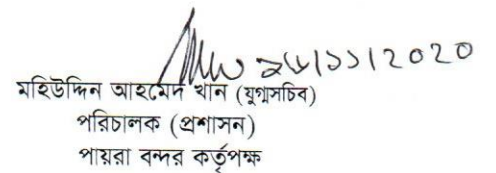 ২৬/১১/2020
মহিউদ্দিন আহমেদ খান (যুগ্মসচিব)
পরিচালক (প্রশাসন)
পায়রা বন্দর কর্তৃপক্ষ